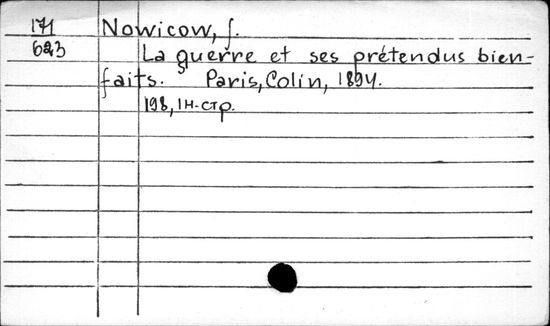 171 Nowicow, J.
623 La guerre et ses prétendus bien-
faits. Paris, Colin, 1894.
198, 1н.стр.